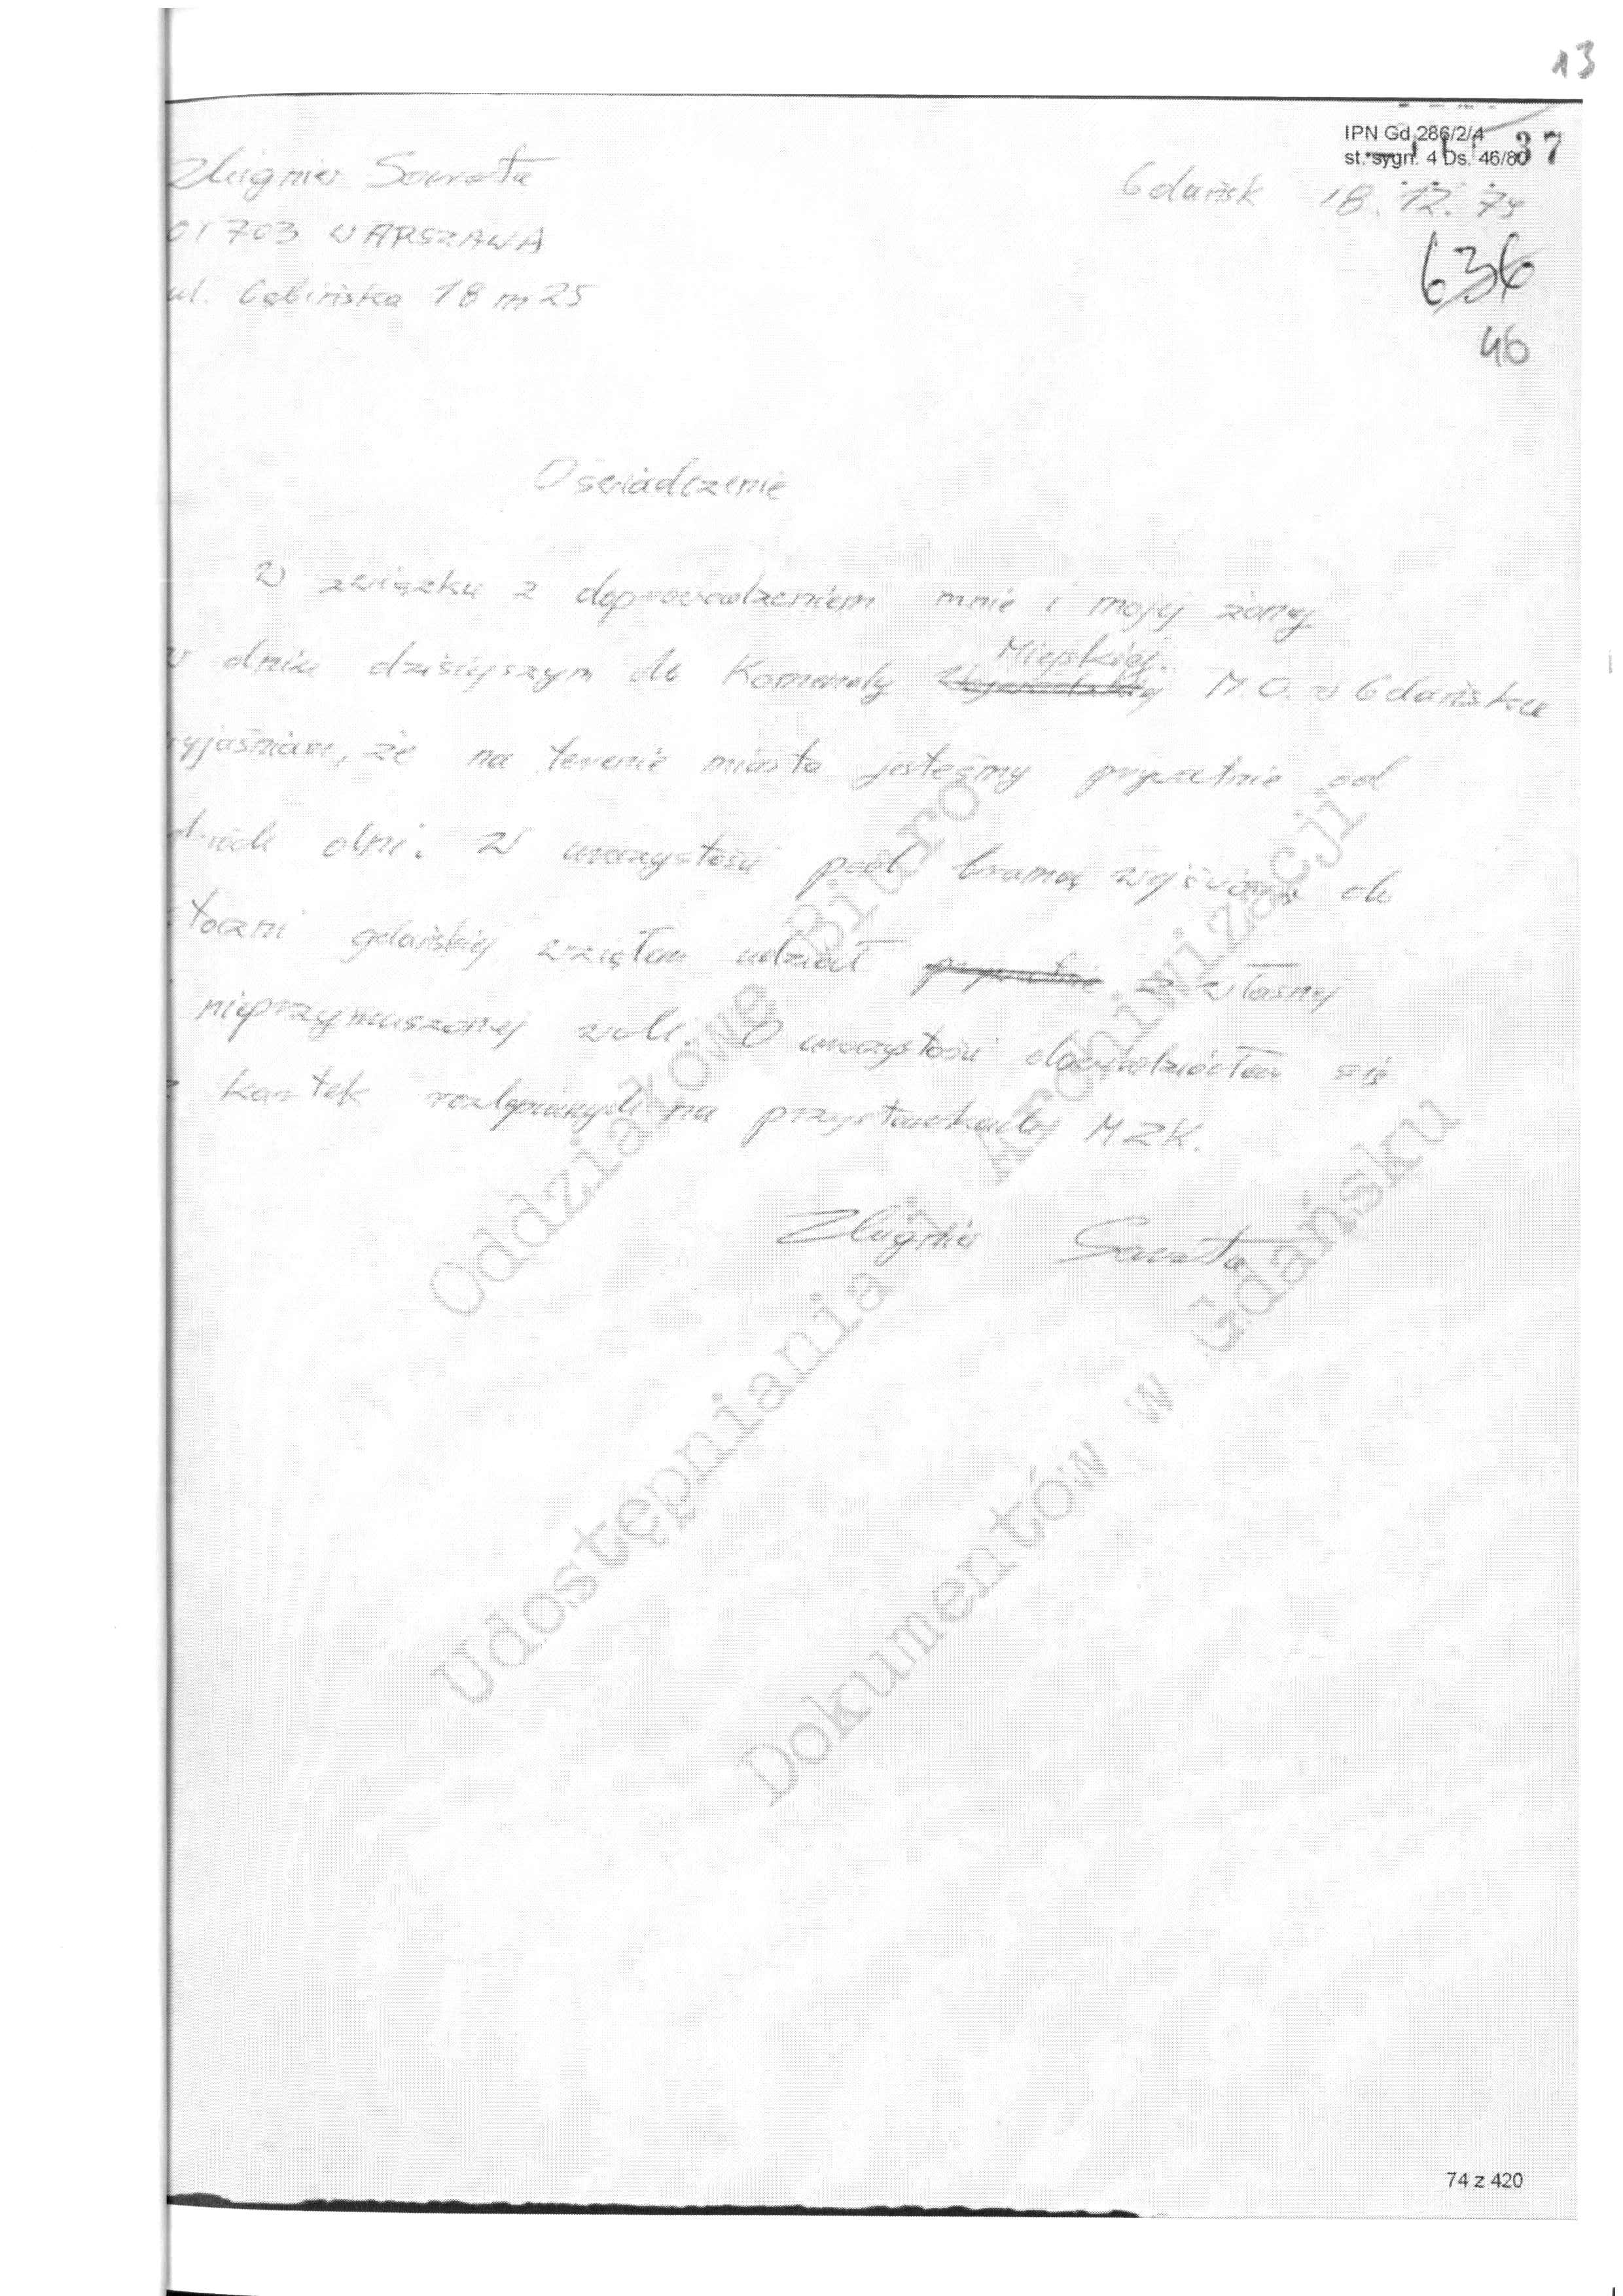 13
IPN Gd 286/2/4
st. sygn. 4 Ds. 46/80
37
Zbigniew Sawata
Gdańsk 18.12.79
01703 WARSZAWA
636
ul. Gąbińska 18 m 25
46
Oświadczenie
W związku z doprowadzeniem mnie i mojej żony
w dniu dzisiejszym do Komendy Miejskiej M.O. w Gdańsku
wyjaśniam, że na terenie miasta jesteśmy prywatnie od
dwóch dni. W uroczystości pod bramą wejściową do
stoczni gdańskiej wziąłem udział prywatnie z własnej
nieprzymuszonej woli. O uroczystości dowiedziałem się
z kartek rozlepianych na przystankach MZK.
Zbigniew Sawata
Oddziałowe Biuro
Udostępniania i Archiwizacji
Dokumentów w Gdańsku
74 z 420